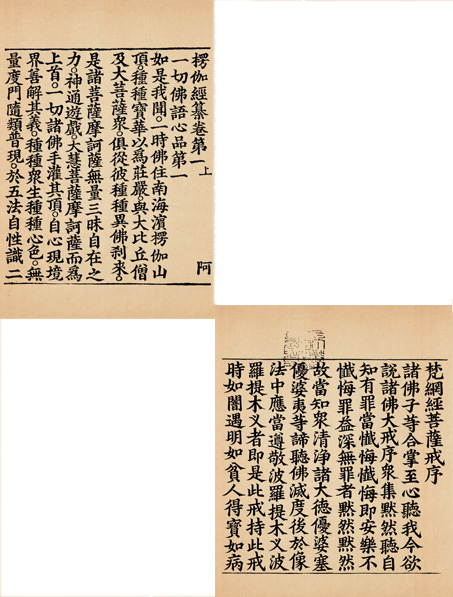 楞伽經纂卷第一上
一切佛語心品第一
阿
如是我聞。一時佛住南海濱楞伽山
頂。種種寶華以爲莊嚴。與大比丘僧
及大菩薩衆。俱從彼種種異佛剎來。
是諸菩薩摩訶薩無量三昧自在之
力。神通遊戲。大慧菩薩摩訶薩而爲
上首。一切諸佛手灌其頂。自心現境
界善解其義。種種衆生種種心色。無
量度門隨類普現。於五法自性識二
梵網經菩薩戒序
諸佛子等合掌至心聽我今欲
說諸佛大戒序衆集默然聽自
知有罪當懺悔懺悔即安樂不
懺悔罪益深無罪者默然默然
故當知衆清淨諸大德優婆塞
優婆夷等諦聽佛滅度後於像
法中應當遵敬波羅提木叉波
羅提木叉者即是此戒持此戒
時如闇遇明如貧人得寶如病